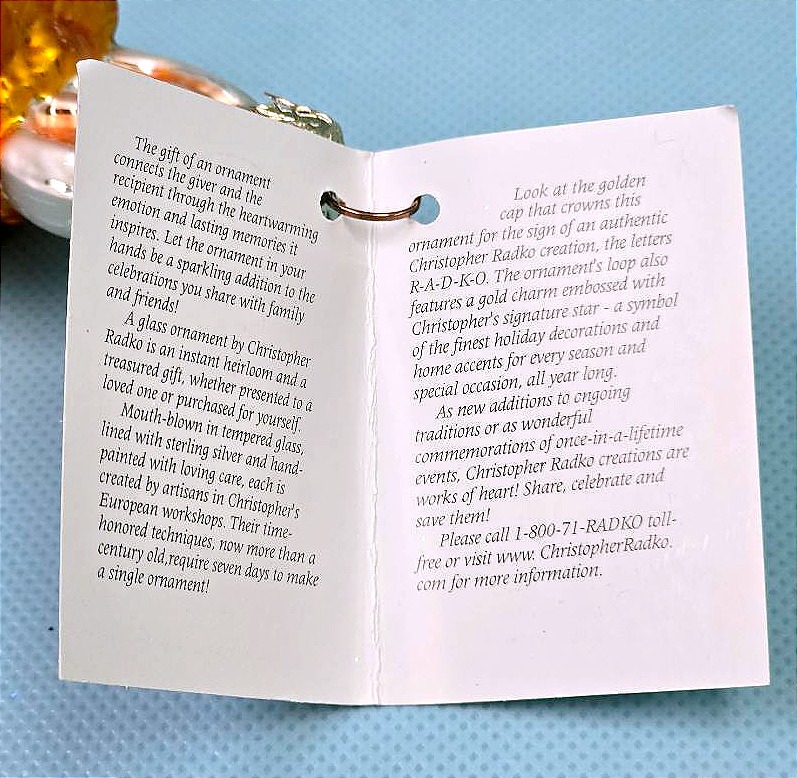 The gift of an ornament
connects the giver and the
recipient through the heartwarming
emotion and lasting memories it
inspires. Let the ornament in your
hands be a sparkling addition to the
celebrations you share with family
and friends!
A glass ornament by Christopher
Radko is an instant heirloom and a
treasured gift, whether presented to a
loved one or purchased for yourself.
Mouth-blown in tempered glass,
lined with sterling silver and hand-
painted with loving care, each is
created by artisans in Christopher's
European workshops. Their time-
honored techniques, now more than a
century old,require seven days to make
a single ornament!
Look at the golden
cap that crowns this
ornament for the sign of an authentic
Christopher Radko creation, the letters
R-A-D-K-O. The ornament's loop also
features a gold charm embossed with
Christopher's signature star – a symbol
of the finest holiday decorations and
home accents for every season and
special occasion, all year long.
As new additions to ongoing
traditions or as wonderful
commemorations of once-in-a-lifetime
events, Christopher Radko creations are
works of heart! Share, celebrate and
save them!
Please call 1-800-71-RADKO toll-
free or visit www. ChristopherRadko.
com for more information.